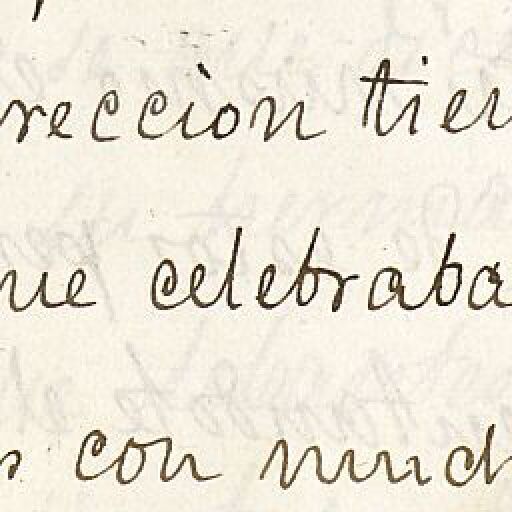 reccion tien
ue celebraba
s con much